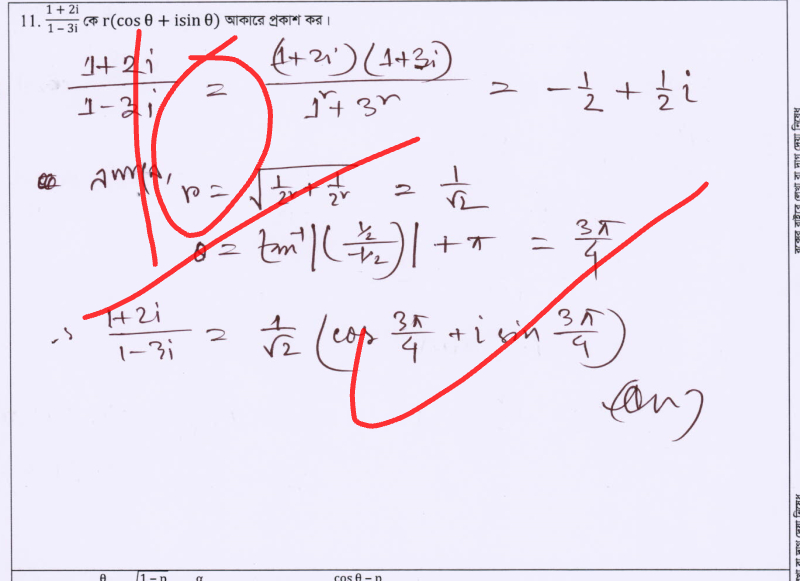 11. (1 + 2i)/(1 − 3i) কে r(cos θ + isin θ) আকারে প্রকাশ কর।
(1+2i)/(1-3i) = (1+2i)(1+3i)/(1²+3²) = -1/2 + 1/2 i
r = √(1/2² + 1/2²) = 1/√2
θ = tan⁻¹|(1/2 / -1/2)| + π = 3π/4
∴ (1+2i)/(1-3i) = 1/√2 (cos 3π/4 + i sin 3π/4)
(Ans)
θ √1 − n α cos θ − n